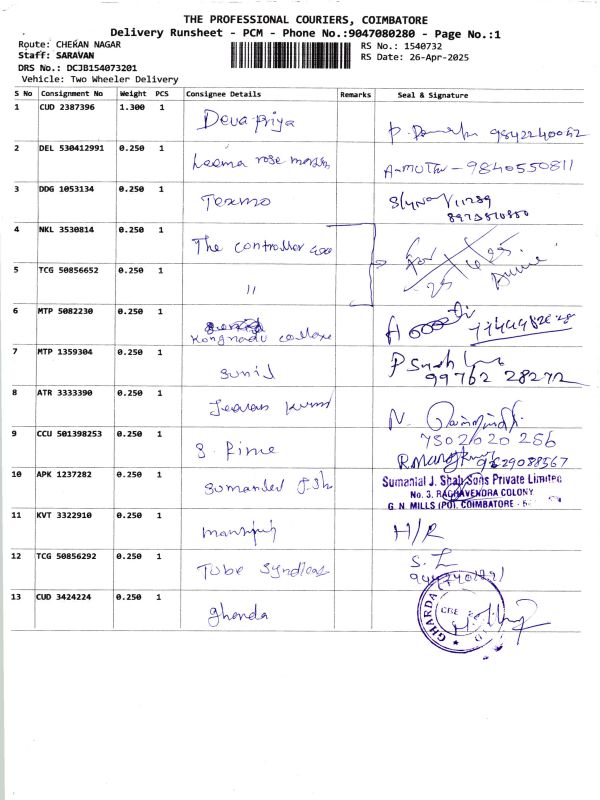 THE PROFESSIONAL COURIERS, COIMBATORE
Delivery Runsheet - PCM - Phone No.:9047080280 - Page No.:1
Route: CHERAN NAGAR
Staff: SARAVAN
DRS No.: DCJB154073201
Vehicle: Two Wheeler Delivery
RS No.: 1540732
RS Date: 26-Apr-2025
S No Consignment No Weight PCS Consignee Details Remarks Seal & Signature
1 CUD 2387396 1.300 1 Deva priya
2 DEL 530412991 0.250 1 Leema rose 9840550811
3 DDG 1053134 0.250 1 Texmo
4 NKL 3530814 0.250 1 The controller
5 TCG 50856652 0.250 1 11
6 MTP 5082230 0.250 1 Kongnadu
7 MTP 1359304 0.250 1 Sunil 99762 28272
8 ATR 3333390 0.250 1 7502020256
9 CCU 501398253 0.250 1 S. Prime 9629088567
10 APK 1237282 0.250 1 Sumanlal J. Shah Sons Private Limited
No. 3, RAGHAVENDRA COLONY
G. N. MILLS (PO), COIMBATORE -
11 KVT 3322910 0.250 1 H/R
12 TCG 50856292 0.250 1 Tube
13 CUD 3424224 0.250 1 Gharda GHARDA CBE